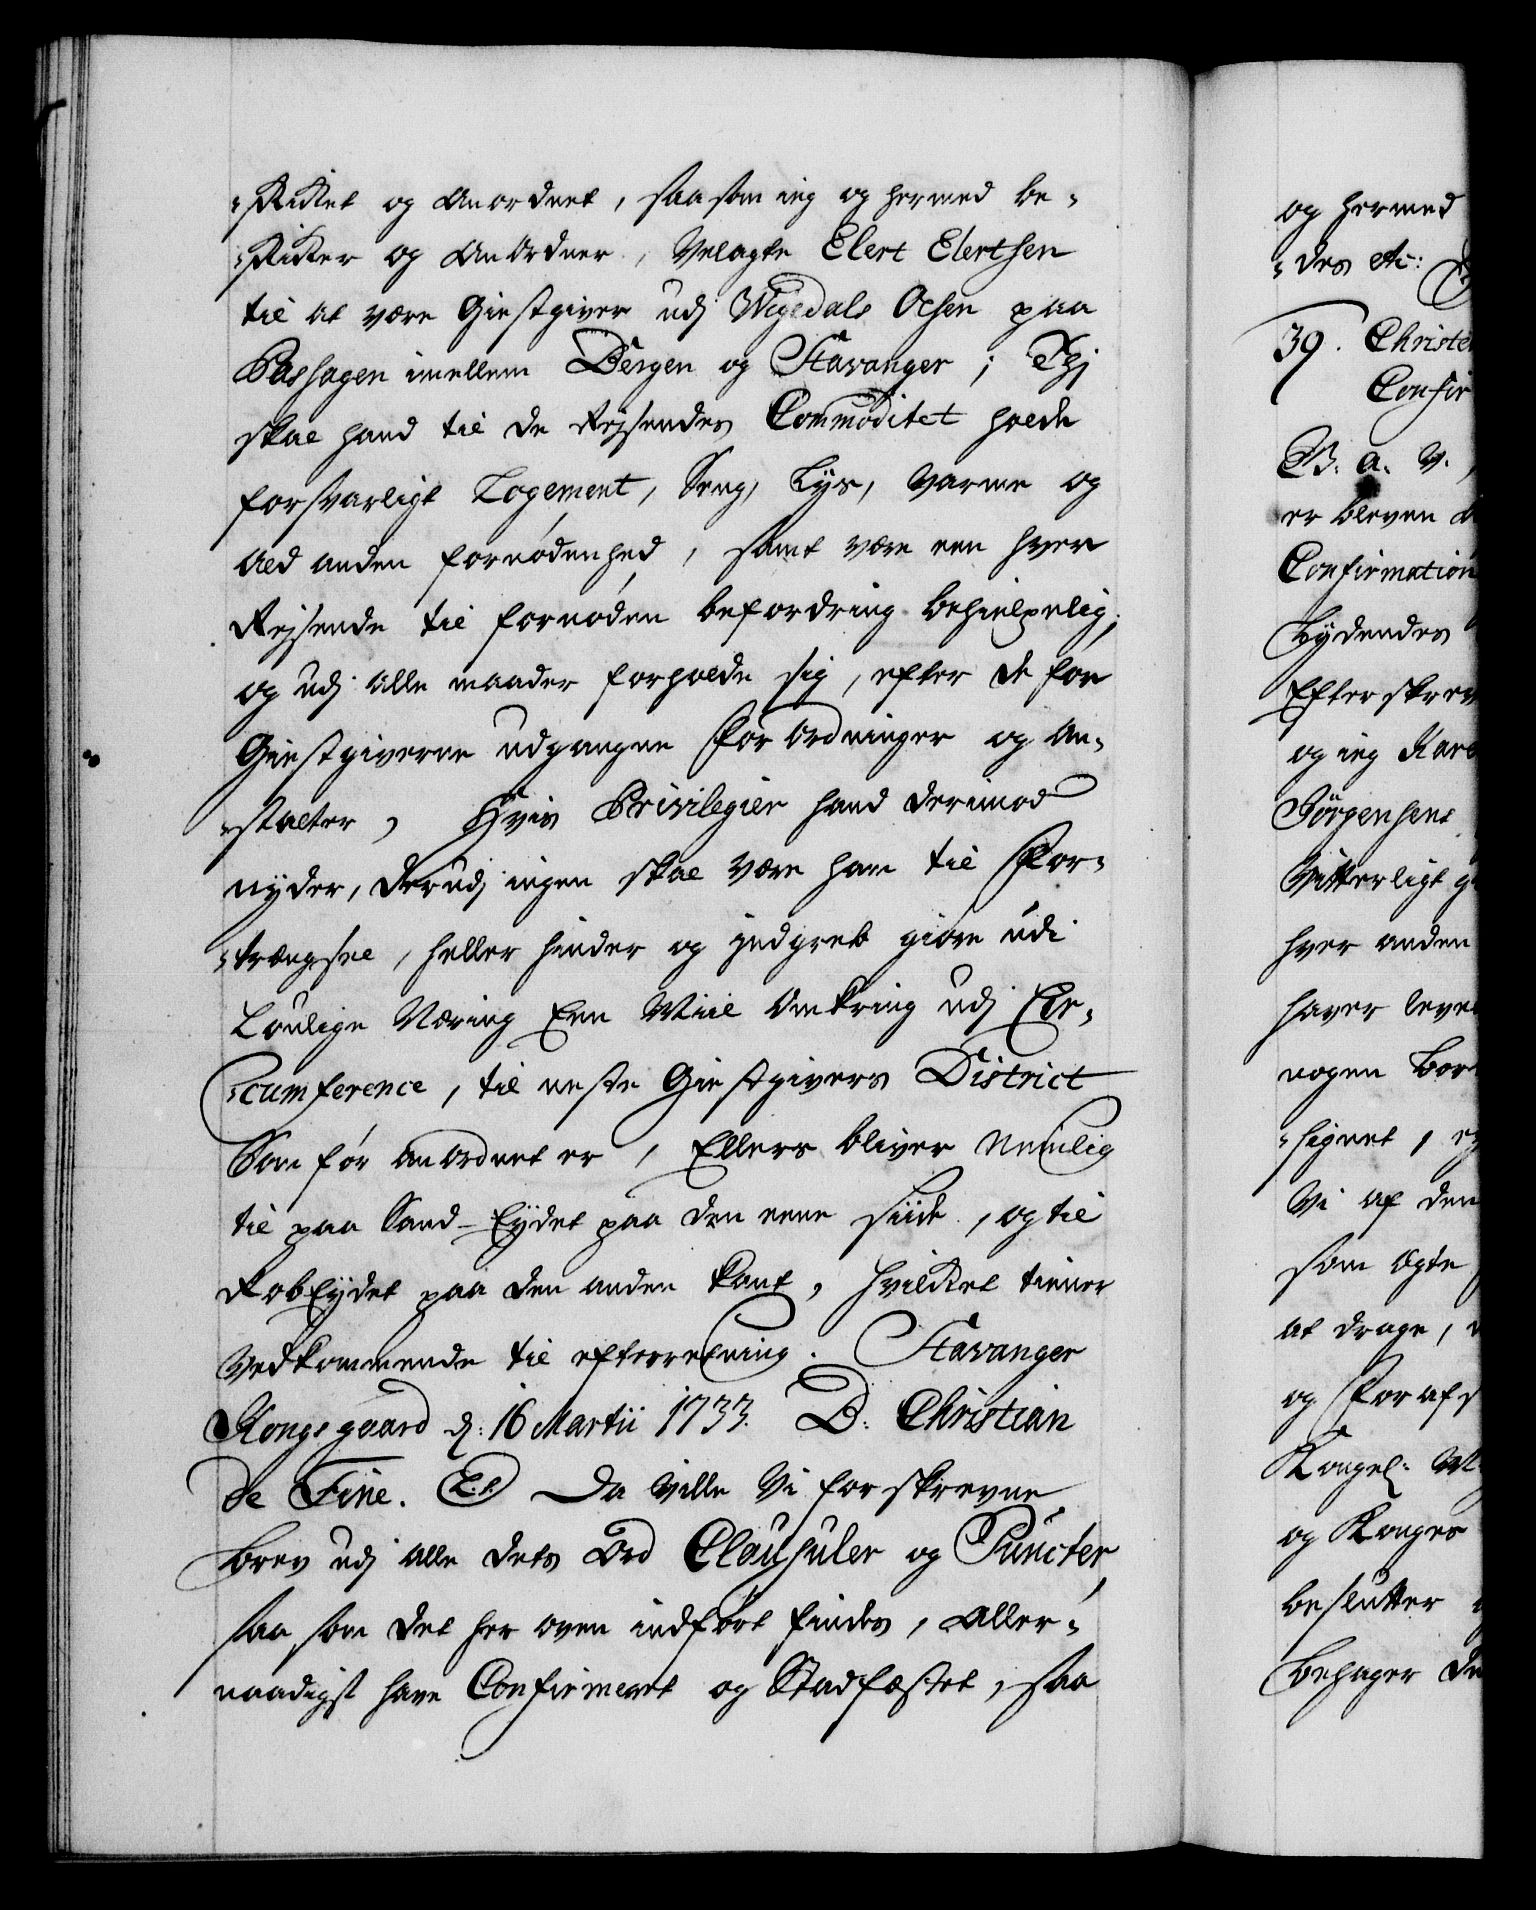 „skiket og Anordnet, saasom ieg og hermed be„
„skiker og AnOrdner, Velagte Elert Elertsen
til at være Giestgiver udj Wigedals Ochsen paa
Passagen imellem Bergen og Stavanger; Thj
skal hand til de Rejsendes Commoditet holde
forsvarligt Logement, Seng, Lys, Varme og
Ald anden fornødenhed, samt være een hver
Rejsende til fornøden befordring behielpelig,
og udj alle maader forholde sig, efter de for
Giestgiverne udgangne Forordninger og An„
„stalter, Hvis Privilegier hand derimod
nyder, derudj ingen skal være ham til For„
„trængsel, heller hinder og indgreb giøre udi
Loulige Næring Een Miil omkring udj Cir„
„cumference, til neste Giestgivers District
Som før anordnet er, Ellers bliver Nemlig
til paa Sand-Eydet paa den eene siide, og til
RobEydet paa den anden kant, hvilket tiener
Vedkommende til efterretning. Stavanger
Kongsgaard d: 16 Martii 1733. B. Christian
de Fine. Da ville Vi forskrevne
brev udj alle dets Ord Clausuler og Puncter,
saa som det her oven indført findes, Aller„
naadigst have Confirmeret og Stadfæstet, saa
og hermed
„des etc:
39. Christe
Confir
B. a. V.
er bleven
Confirmation
Lydendes
Efterskrev
og ieg Kare
Jørgensens
Vitterligt
hver anden
haver leve
nogen
„signet,
Vi af den
som Egte
at drage,
og For
Kongel: M
og Konges
beslutter
behager